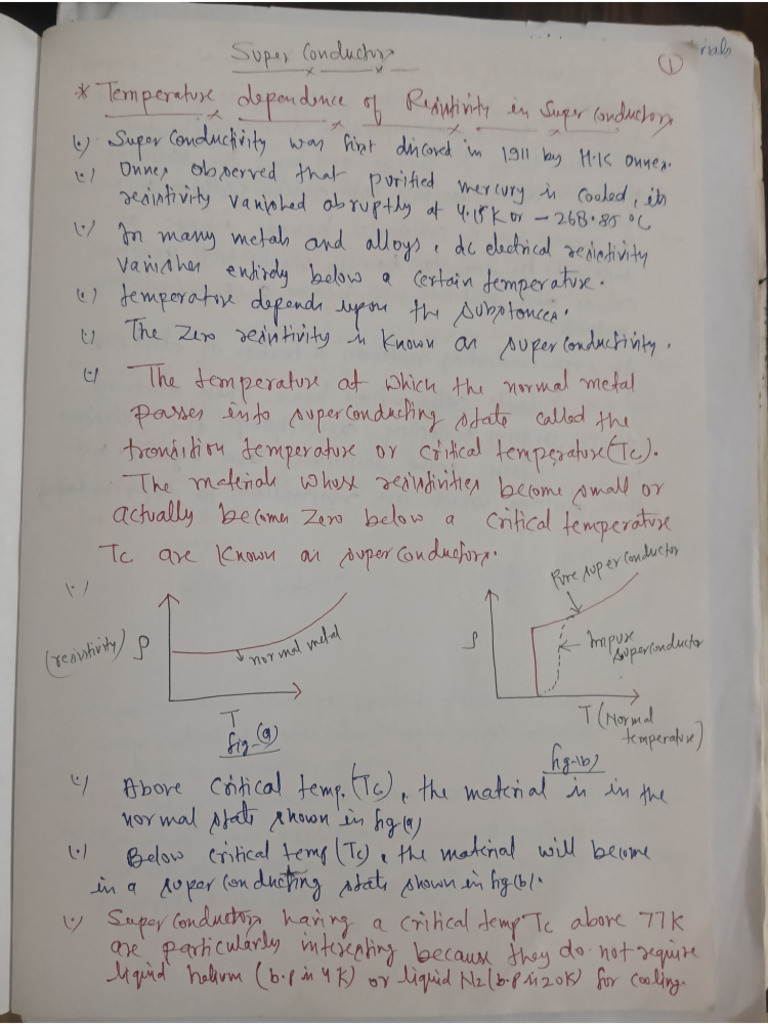 Super Conductors
①
rials
* Temperature dependence of Resistivity in Super Conductors
(i) Super Conductivity was first discoved in 1911 by H.K onnes.
(i) Onnes observed that purified mercury is cooled, its
resistivity vanished abruptly at 4.15K or - 268.85 °C
(i) In many metals and alloys, dc electrical resistivity
vanishes entirely below a certain temperature.
(i) temperature depends upon the substances.
(i) The Zero resistivity is known as super conductivity.
(i) The temperature at which the normal metal
passes into superconducting state called the
transition temperature or critical temperature (Tc).
The materials whose resistivities become small or
actually becomes Zero below a critical temperature
Tc are known as super conductors.
(i)
(resistivity) ρ
normal metal
T
fig-(a)
Pure super conductor
ρ
Impure
superconductor
T (Normal
temperature)
fig-(b)
(i) Above critical temp. (Tc), the material is in the
normal state shown in fig (a)
(i) Below critical temp (Tc), the material will become
in a super conducting state shown in fig (b).
(i) Super Conductors having a critical temp Tc above 77K
are particularly interesting because they do not require
liquid helium (b.p is 4K) or liquid N2 (b.p is 20K) for cooling.